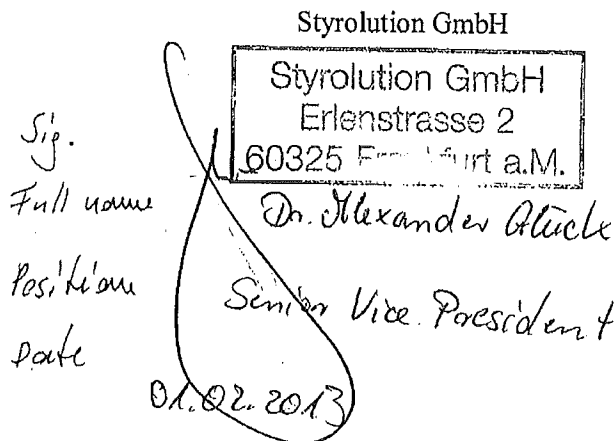 Styrolution GmbH
Styrolution GmbH
Erlenstrasse 2
60325 Frankfurt a.M.
Sig.
Full name Dr. Alexander Glück
Position Senior Vice President
Date 01.02.2013